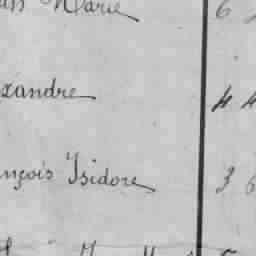 Marie 6
xandre 4 4
nçois Isidore 3 6